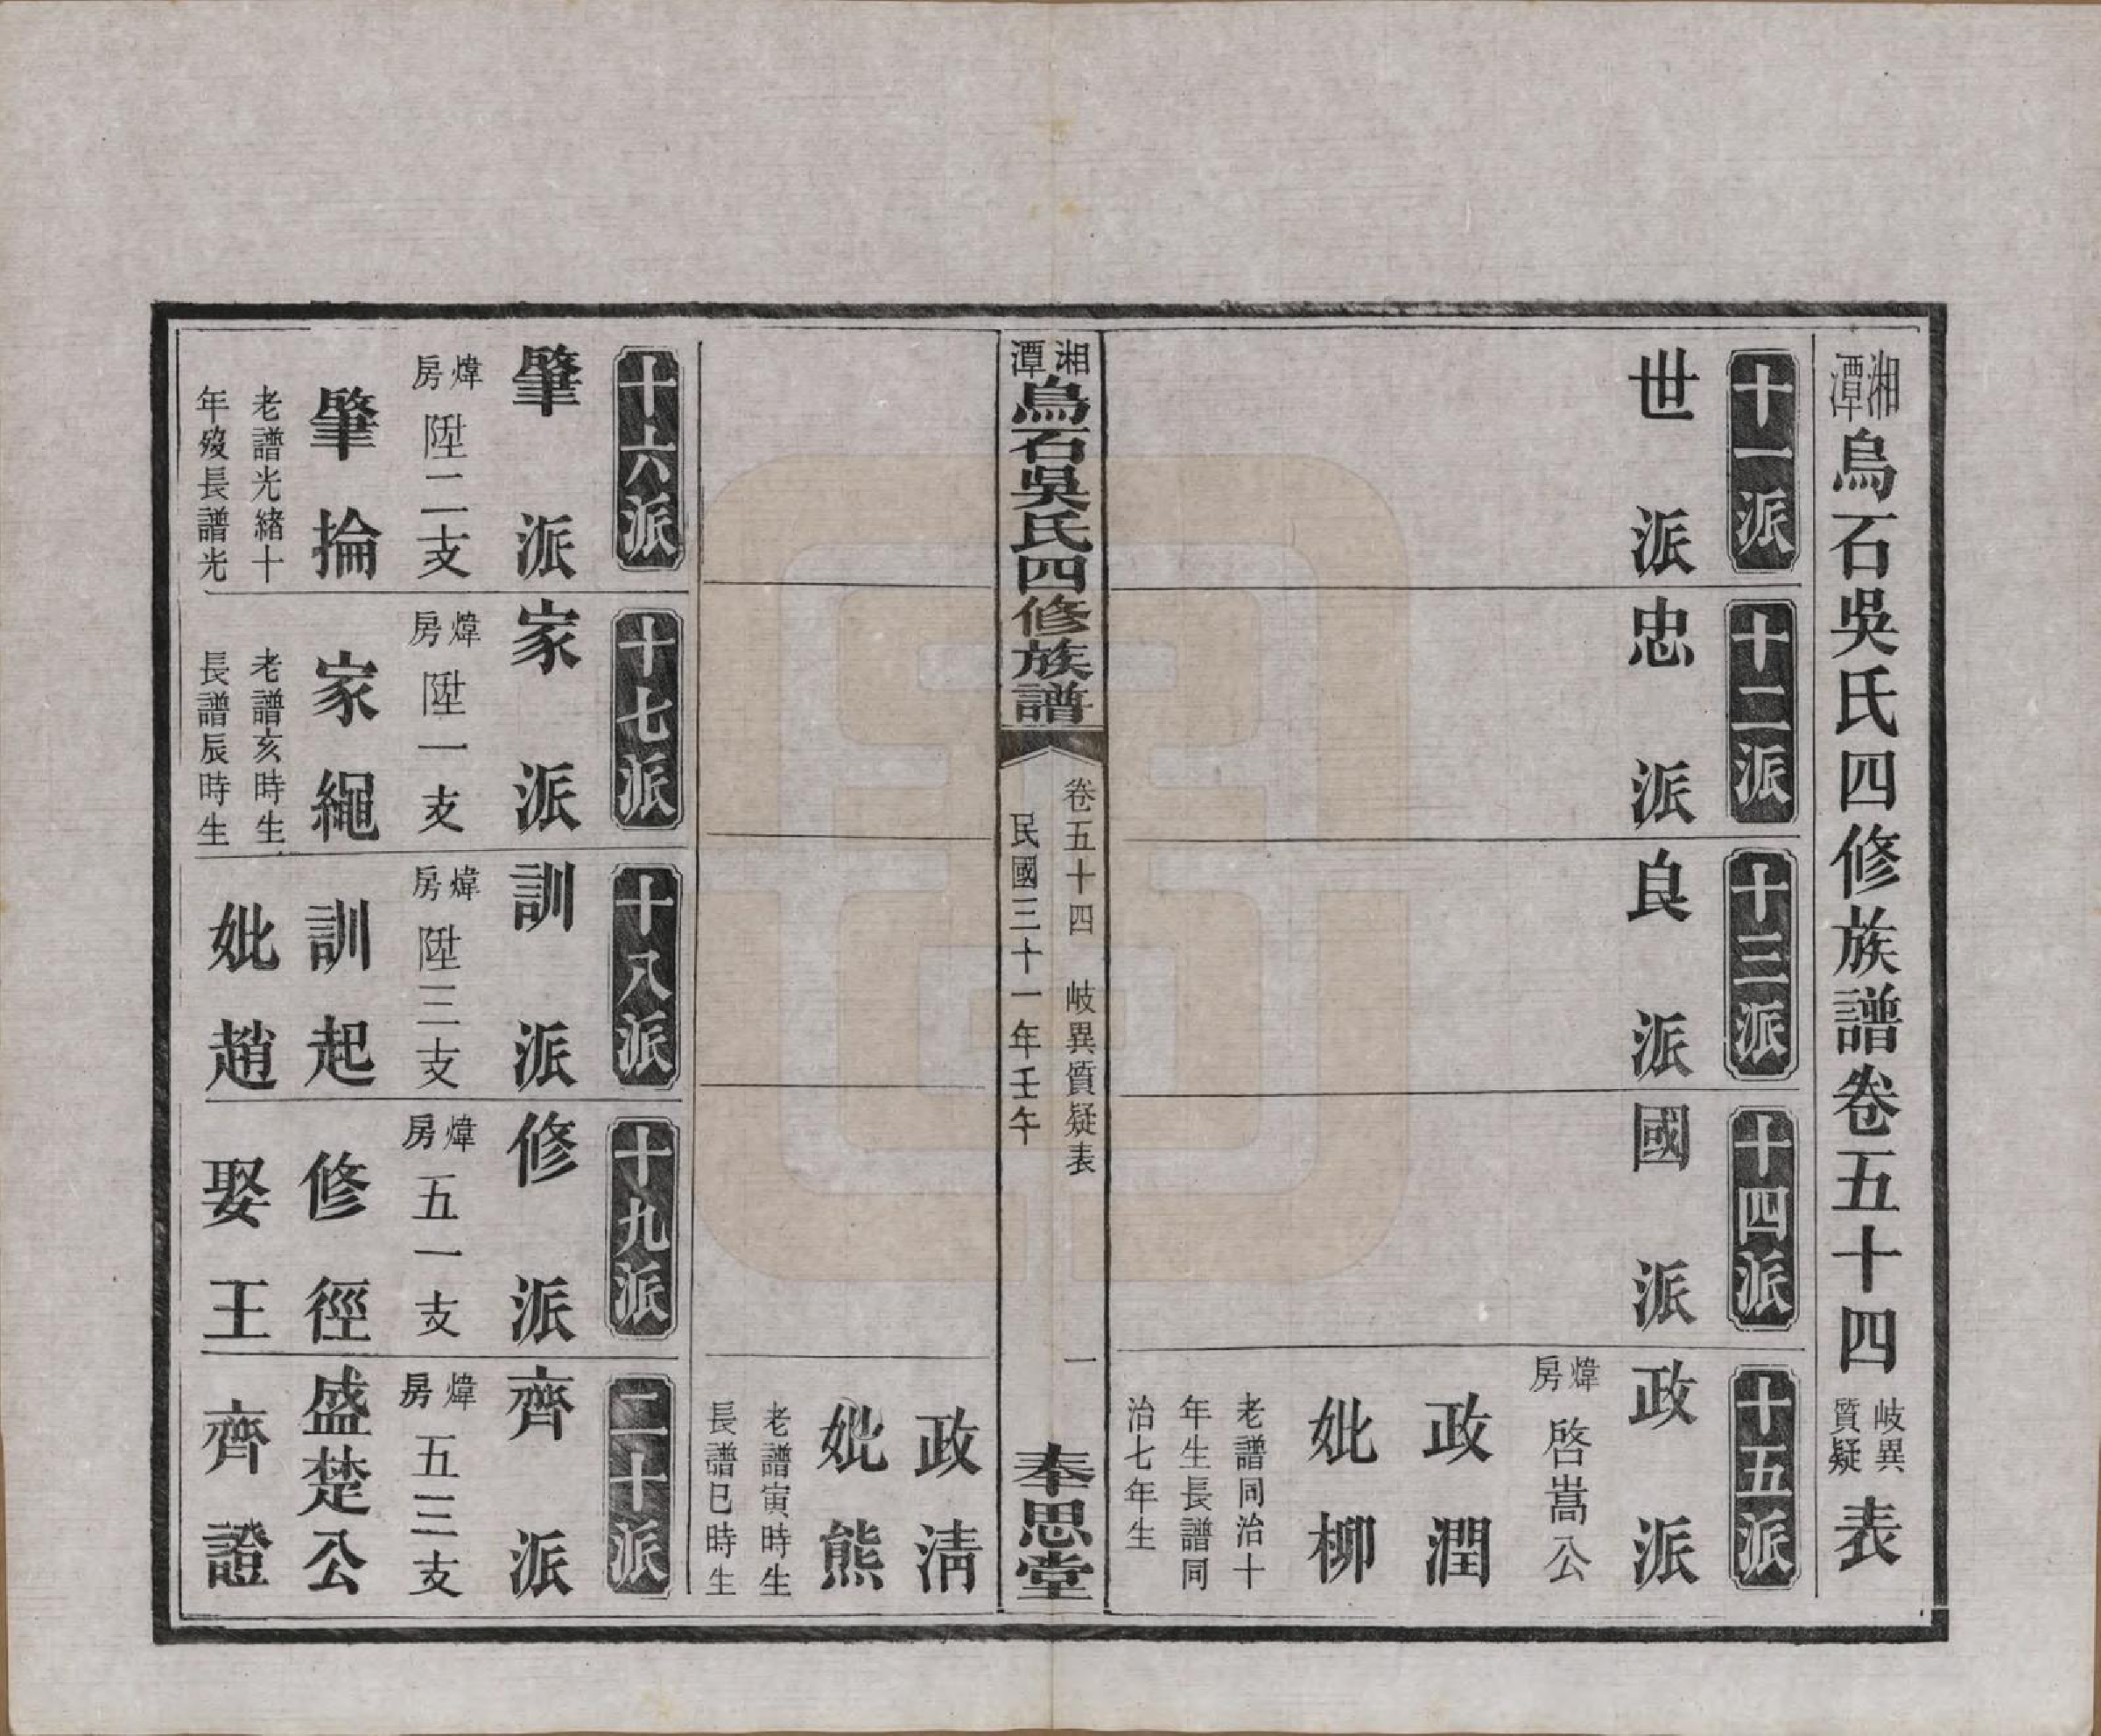 湘潭烏石吳氏四修族譜卷五十四岐異質疑表
十一派
世派
十二派
忠派
十三派
良派
十四派
國派
十五派
政派
煒房啓嵩公
政潤
妣柳
老譜同治十
年生長譜同
治七年生
湘潭烏石吳氏四修族譜
卷五十四 岐異質疑表 一
民國三十一年壬午
奉思堂
政淸
妣熊
老譜寅時生
長譜巳時生
十六派
肇派
煒房陞二支
肇掄
老譜光緒十
年歿長譜光
十七派
家派
煒房陞一支
家繩
老譜亥時生
長譜辰時生
十八派
訓派
煒房陞三支
訓起
妣趙
十九派
修派
煒房五一支
修徑
娶王
二十派
齊派
煒房五三支
盛楚公
齊證